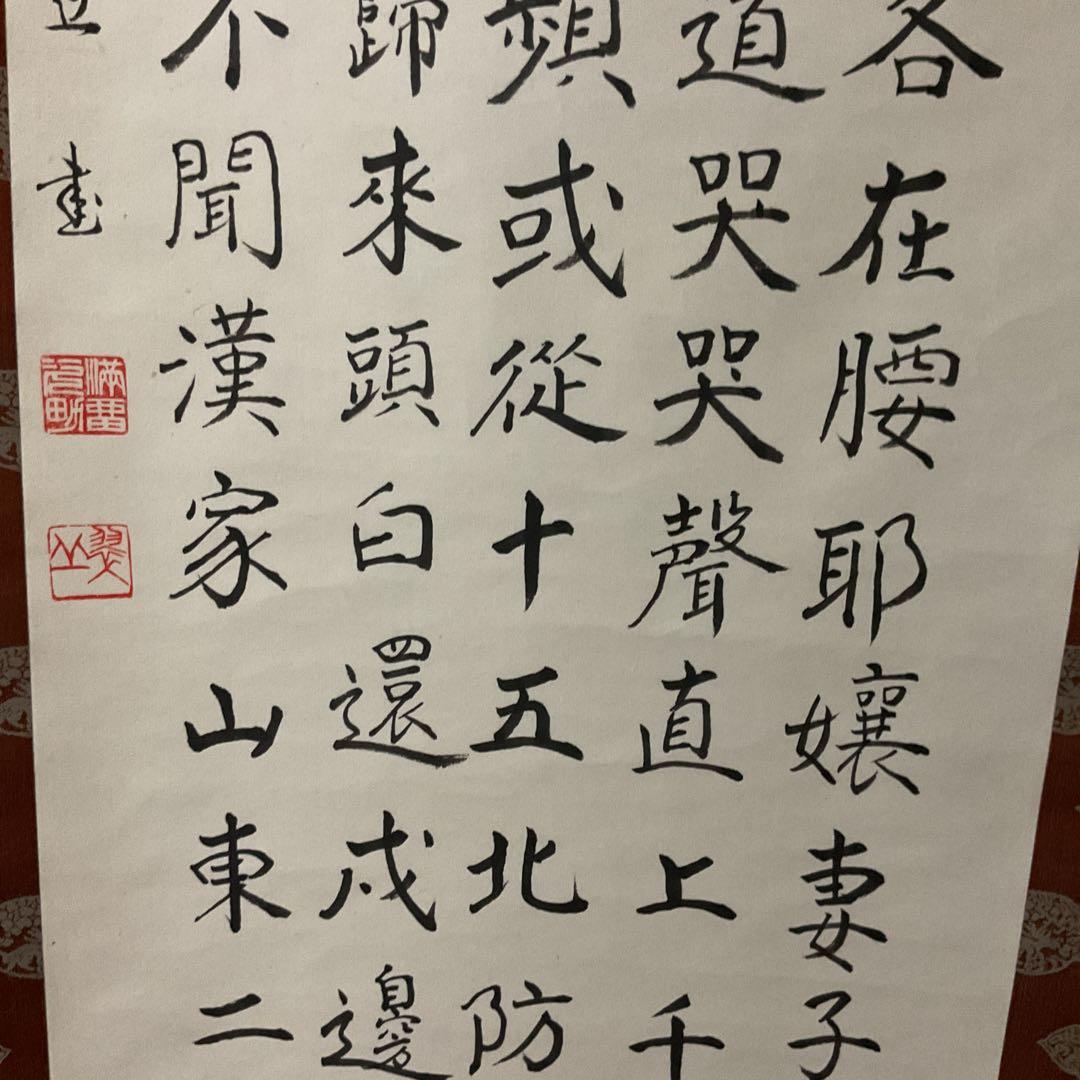 各在腰耶孃妻子
道哭哭聲直上千
頻或從十五北防
歸來頭白還戍邊
不聞漢家山東二
書